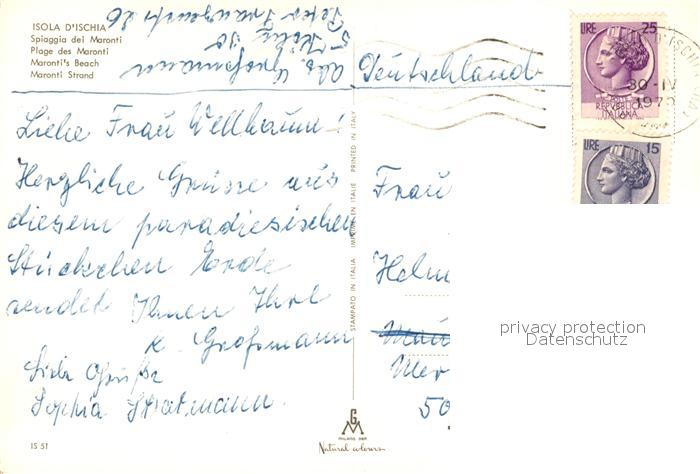 ISOLA D'ISCHIA
Spiaggia dei Maronti
Plage des Maronti
Maronti's Beach
Maronti Strand
Abs. Grossmann
5 Köln 30
Peter Franzenstr. 26
Deutschland
Liebe Frau Wellbaum!
Herzliche Grüsse aus
diesem paradiesischen
Stückchen Erde
sendet Ihnen Ihre
K. Großmann
Liebe Grüße
Sophia Stratmann.
STAMPATO IN ITALIA IMPRIMÉ EN ITALIE PRINTED IN ITALY
Frau
Helm
Mer
50
LIRE 25
REPUBBLICA
ITALIANA
30-IV
1970
LIRE 15
privacy protection
Datenschutz
GM
MILANO
Natural colours
IS 51